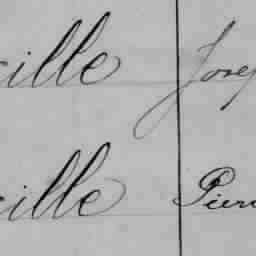 ille Jose
ille Pier